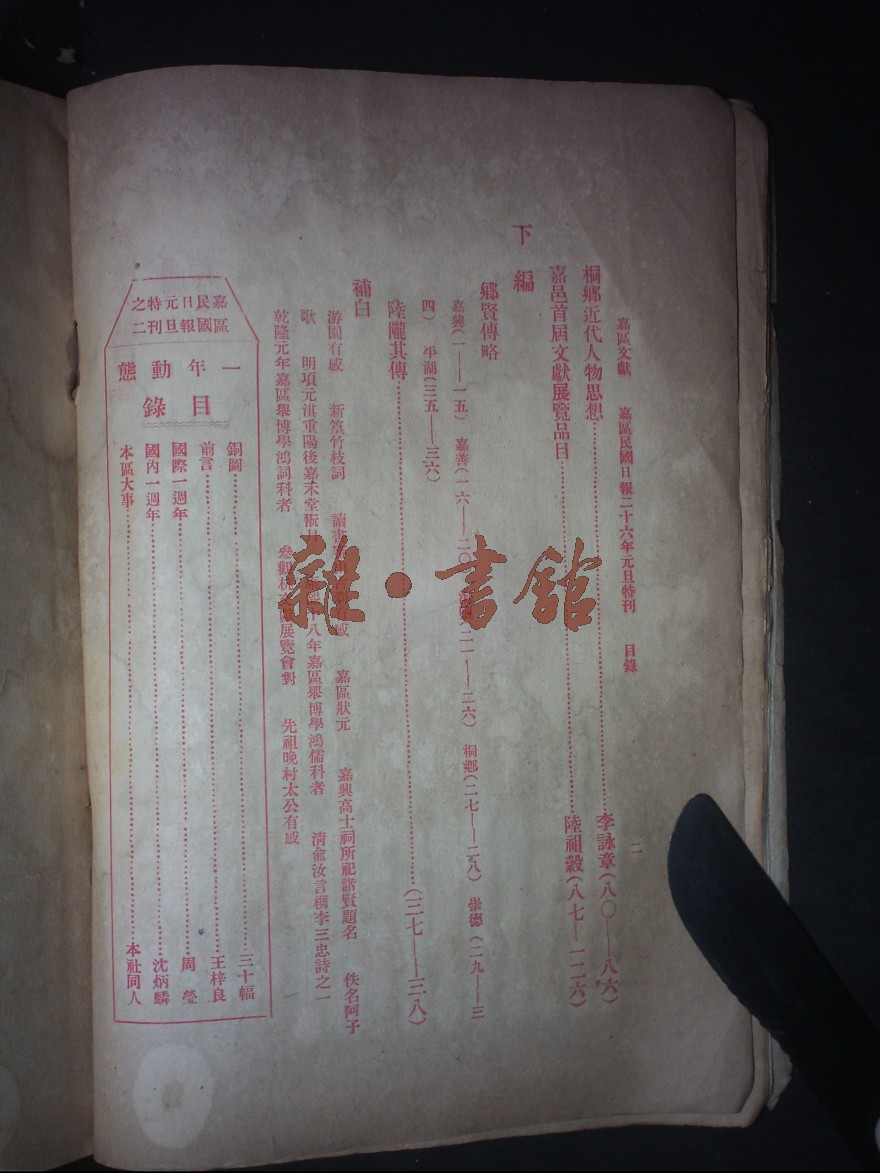 嘉區文獻　嘉區民國日報二十六年元旦特刊　目錄　二
桐鄉近代人物思想……李詠章(八〇——八六)
嘉邑首屆文獻展覽品目……陸祖穀(八七——一二六)
下編
鄉賢傳略
嘉興(一——一五)　嘉善(一六——二〇)　二一——二六)　桐鄉(二七——二八)　崇德(二九——三
四)　平湖(三五——三六)
陸隴其傳……(三七——三八)
補白
游園有感　新篁竹枝詞　讀書　感　嘉區狀元　嘉興高士祠所祀諸賢題名　佚名阿子
歌　明項元淇重陽後嘉禾堂　十八年嘉區舉博學鴻儒科者　清俞汝言檇李三忠詩之一
乾隆元年嘉區舉博學鴻詞科者　參觀杭　展覽會對　先祖晚村太公有感
嘉區民國日報元旦特刊之二
一年動態
目錄
銅圖……三十幅
前言……王梓良
國際一週年……周瑩
國內一週年……沈炳麟
本區大事……本社同人
雜·書館